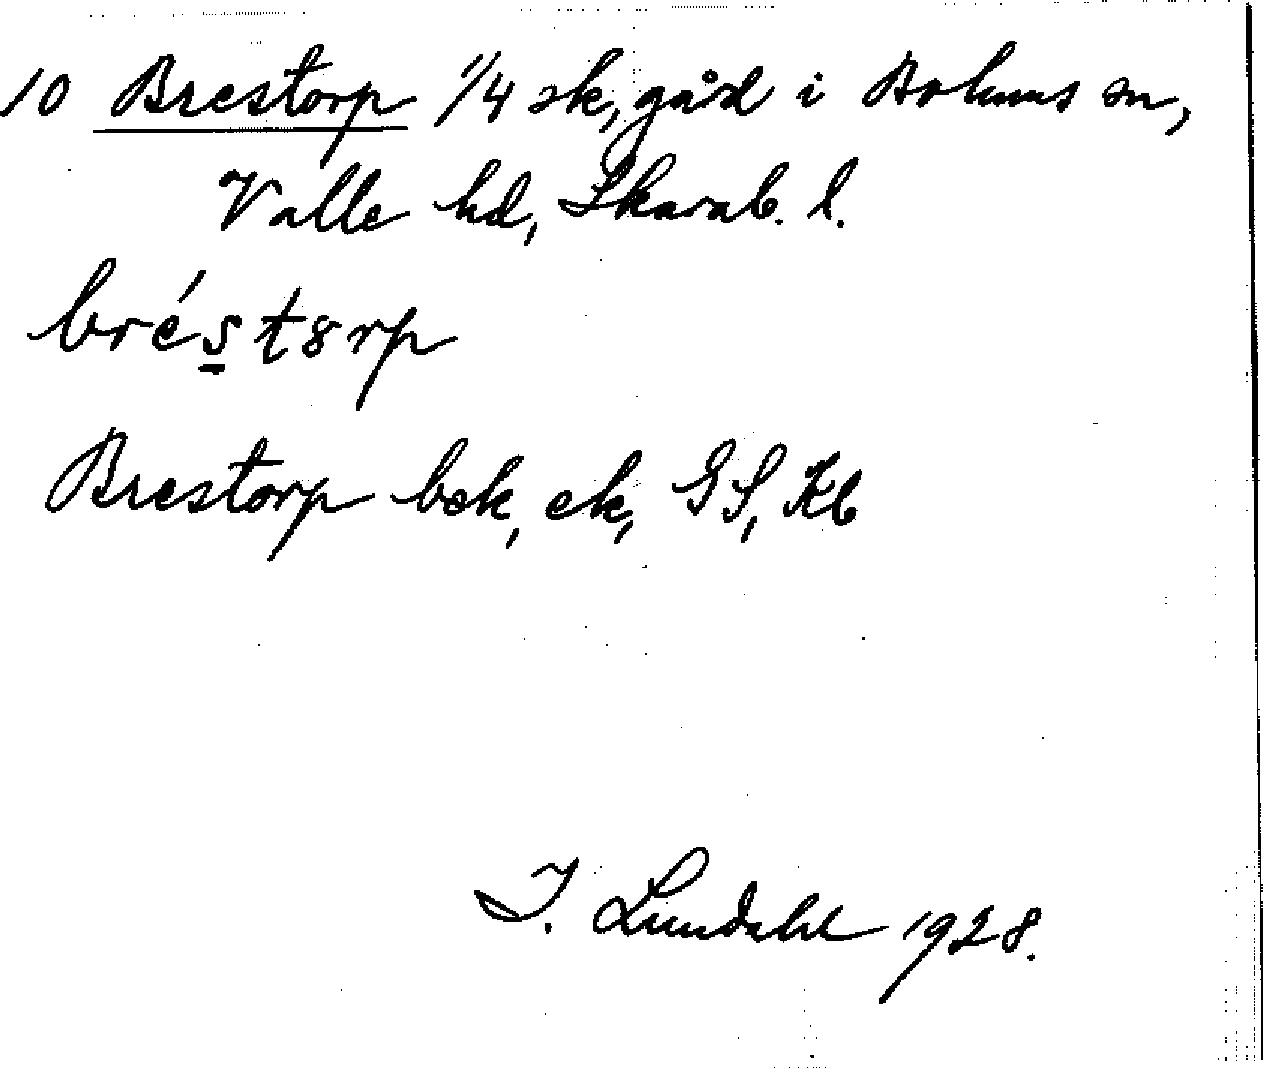 10 Brestorp 1/4 sk, gård i Bolums sn,
Valle hd, Skarab. l.
bréstorp
Brestorp bok, ek, GS, Kb
I. Lundahl 1928.